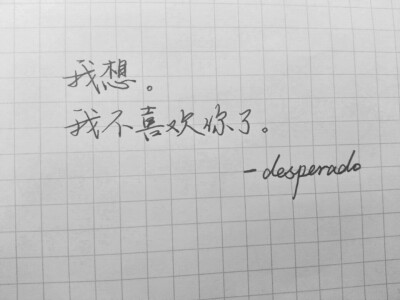 我想。
我不喜欢你了。
-desperado